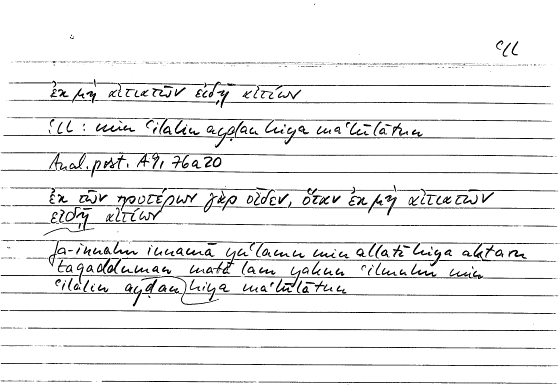 ʿll
ἐκ μὴ αἰτιατῶν εἰδῇ αἰτίων
ʿll : min ʿilalin ayḍan hiya maʿlūlātun
Anal. post. A 9, 76a20
ἐκ τῶν προτέρων γὰρ οἶδεν, ὅταν ἐκ μὴ αἰτιατῶν
εἰδῇ αἰτίων
fa-innahu innamā yaʿlamu min allatī hiya aktaru
taqadduman matā lam yakun ʿilmuhu min
ʿilalin ayḍan hiya maʿlūlātun